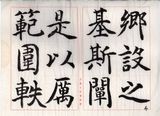 鄉設之
基斯闡
是以厲
範圍軼